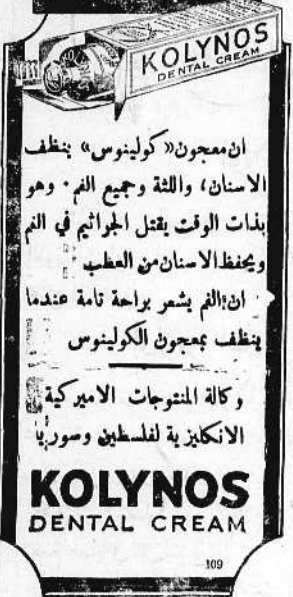 KOLYNOS
DENTAL CREAM
ان معجون «كولينوس» ينظف
الاسنان، واللثة وجميع الفم. وهو
بذات الوقت يقتل الجراثيم في الفم
ويحفظ الاسنان من العطب
ان الفم يشعر براحة تامة عندما
ينظف بمعجون الكولينوس
وكالة المنتوجات الاميركية
الانكليزية لفلسطين وسوريا
KOLYNOS
DENTAL CREAM
109